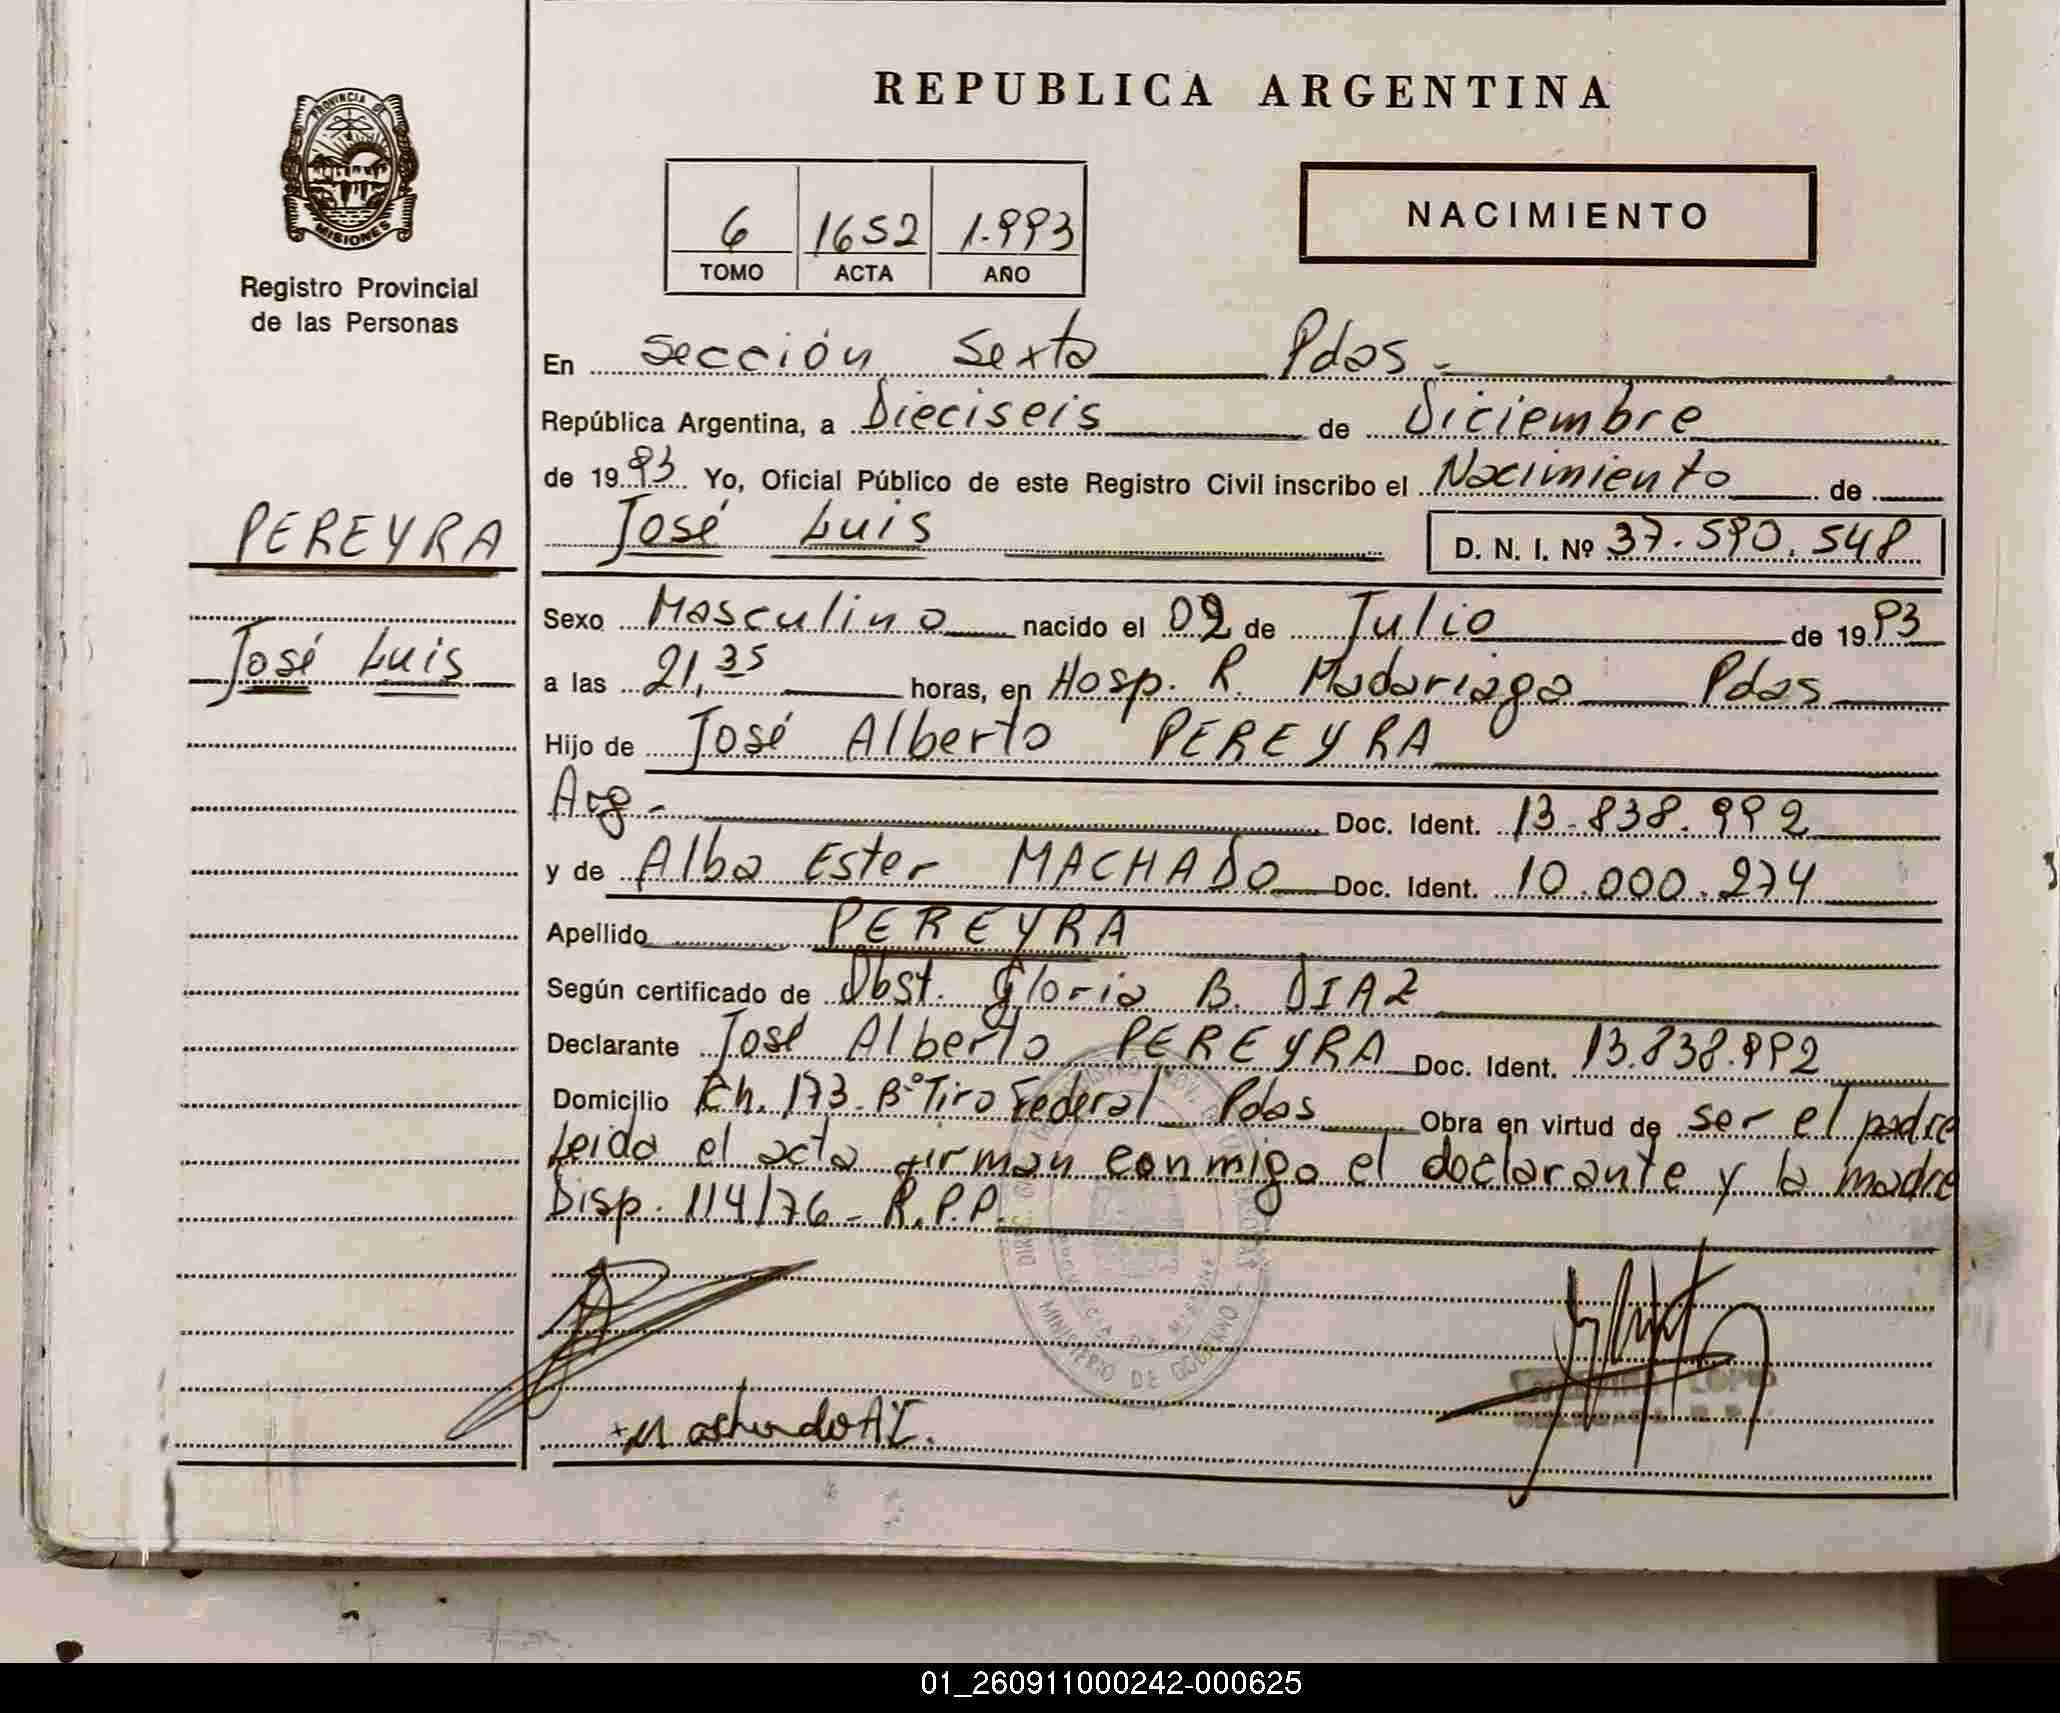 REPUBLICA ARGENTINA
PROVINCIA DE
MISIONES
Registro Provincial
de las Personas
6 1652 1.993
TOMO ACTA AÑO
NACIMIENTO
En Sección Sexta Pdas.-
República Argentina, a Dieciseis de Diciembre
de 1993 Yo, Oficial Público de este Registro Civil inscribo el Nacimiento de
PEREYRA
José Luis
José Luis D. N. I. Nº 37.590.548
Sexo Masculino nacido el 02 de Julio de 1993
a las 21,35 horas, en Hosp. R. Madariaga Pdas
Hijo de José Alberto PEREYRA
Arg.- Doc. Ident. 13.838.992
y de Alba Ester MACHADO Doc. Ident. 10.000.274
Apellido PEREYRA
Según certificado de Obst. Gloria B. DIAZ
Declarante José Alberto PEREYRA Doc. Ident. 13.838.992
Domicilio Ch. 173. Bº Tiro Federal Pdas Obra en virtud de ser el padre
Leida el acta firman conmigo el declarante y la madre
Disp. 114/76 - R.P.P.
MINISTERIO DE GOBIERNO
01_260911000242-000625